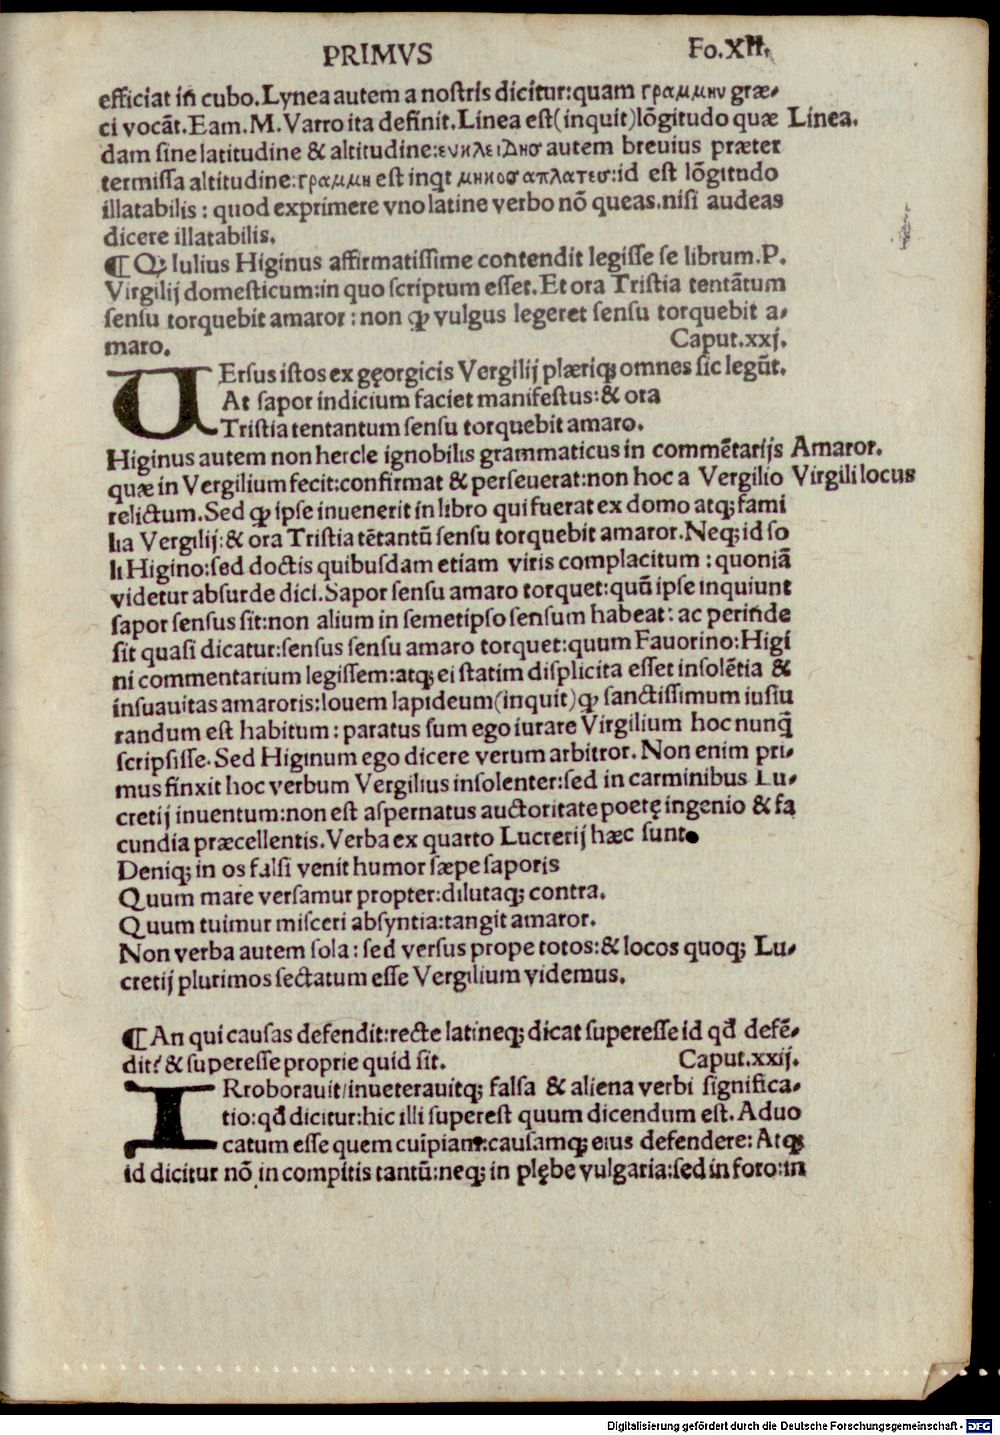 PRIMVS Fo.XII.
efficiat in cubo. Lynea autem a nostris dicitur: quam γραμμην græ-
ci vocāt. Eam. M. Varro ita definit. Linea est (inquit) lōgitudo quæ Linea.
dam sine latitudine & altitudine: ευκλειδησ autem breuius præter
termissa altitudine: γραμμη est inqt μηκοσ απλατεσ: id est lōgitudo
illatabilis: quod exprimere vno latine verbo nō queas. nisi audeas
dicere illatabilis.
¶ Qꝫ Iulius Higinus affirmatissime contendit legisse se librum. P.
Virgilij domesticum: in quo scriptum esset. Et ora Tristia tentātum
sensu torquebit amaror: non ꝙ vulgus legeret sensu torquebit a-
maro. Caput.xxj.
VErsus istos ex gęorgicis Vergilij plæriqꝫ omnes sic legūt.
At sapor indicium faciet manifestus: & ora
Tristia tentantum sensu torquebit amaro.
Higinus autem non hercle ignobilis grammaticus in commētarijs Amaror.
quæ in Vergilium fecit: confirmat & perseuerat: non hoc a Vergilio Virgili locus
relictum. Sed ꝙ ipse inuenerit in libro qui fuerat ex domo atqꝫ fami
lia Vergilij: & ora Tristia tētantū sensu torquebit amaror. Neqꝫ id so
li Higino: sed doctis quibusdam etiam viris complacitum: quoniā
videtur absurde dici. Sapor sensu amaro torquet: quū ipse inquiunt
sapor sensus sit: non alium in semetipso sensum habeat: ac perinde
sit quasi dicatur: sensus sensu amaro torquet: quum Fauorino: Higi
ni commentarium legissem: atqꝫ ei statim displicita esset insolētia &
insuauitas amaroris: Iouem lapideum (inquit) ꝙ sanctissimum iusiu
randum est habitum: paratus sum ego iurare Virgilium hoc nunq̄
scripsisse. Sed Higinum ego dicere verum arbitror. Non enim pri-
mus finxit hoc verbum Vergilius insolenter: sed in carminibus Lu-
cretij inuentum: non est aspernatus auctoritate poetę ingenio & fa
cundia præcellentis. Verba ex quarto Lucrerij hæc sunt.
Deniqꝫ in os falsi venit humor sæpe saporis
Quum mare versamur propter: dilutaqꝫ contra.
Quum tuimur misceri absyntia: tangit amaror.
Non verba autem sola: sed versus prope totos: & locos quoqꝫ Lu-
cretij plurimos sectatum esse Vergilium videmus.
¶ An qui causas defendit: recte latineqꝫ dicat superesse id qđ defē-
dit? & superesse proprie quid sit. Caput.xxij.
IRroborauit/ inueterauitqꝫ falsa & aliena verbi significa-
tio: qđ dicitur: hic illi superest quum dicendum est. Aduo
catum esse quem cuipiam: causamqꝫ eius defendere: Atqꝫ
id dicitur nō in compitis tantū: neqꝫ in plębe vulgaria: sed in foro: in
Digitalisierung gefördert durch die Deutsche Forschungsgemeinschaft - DFG